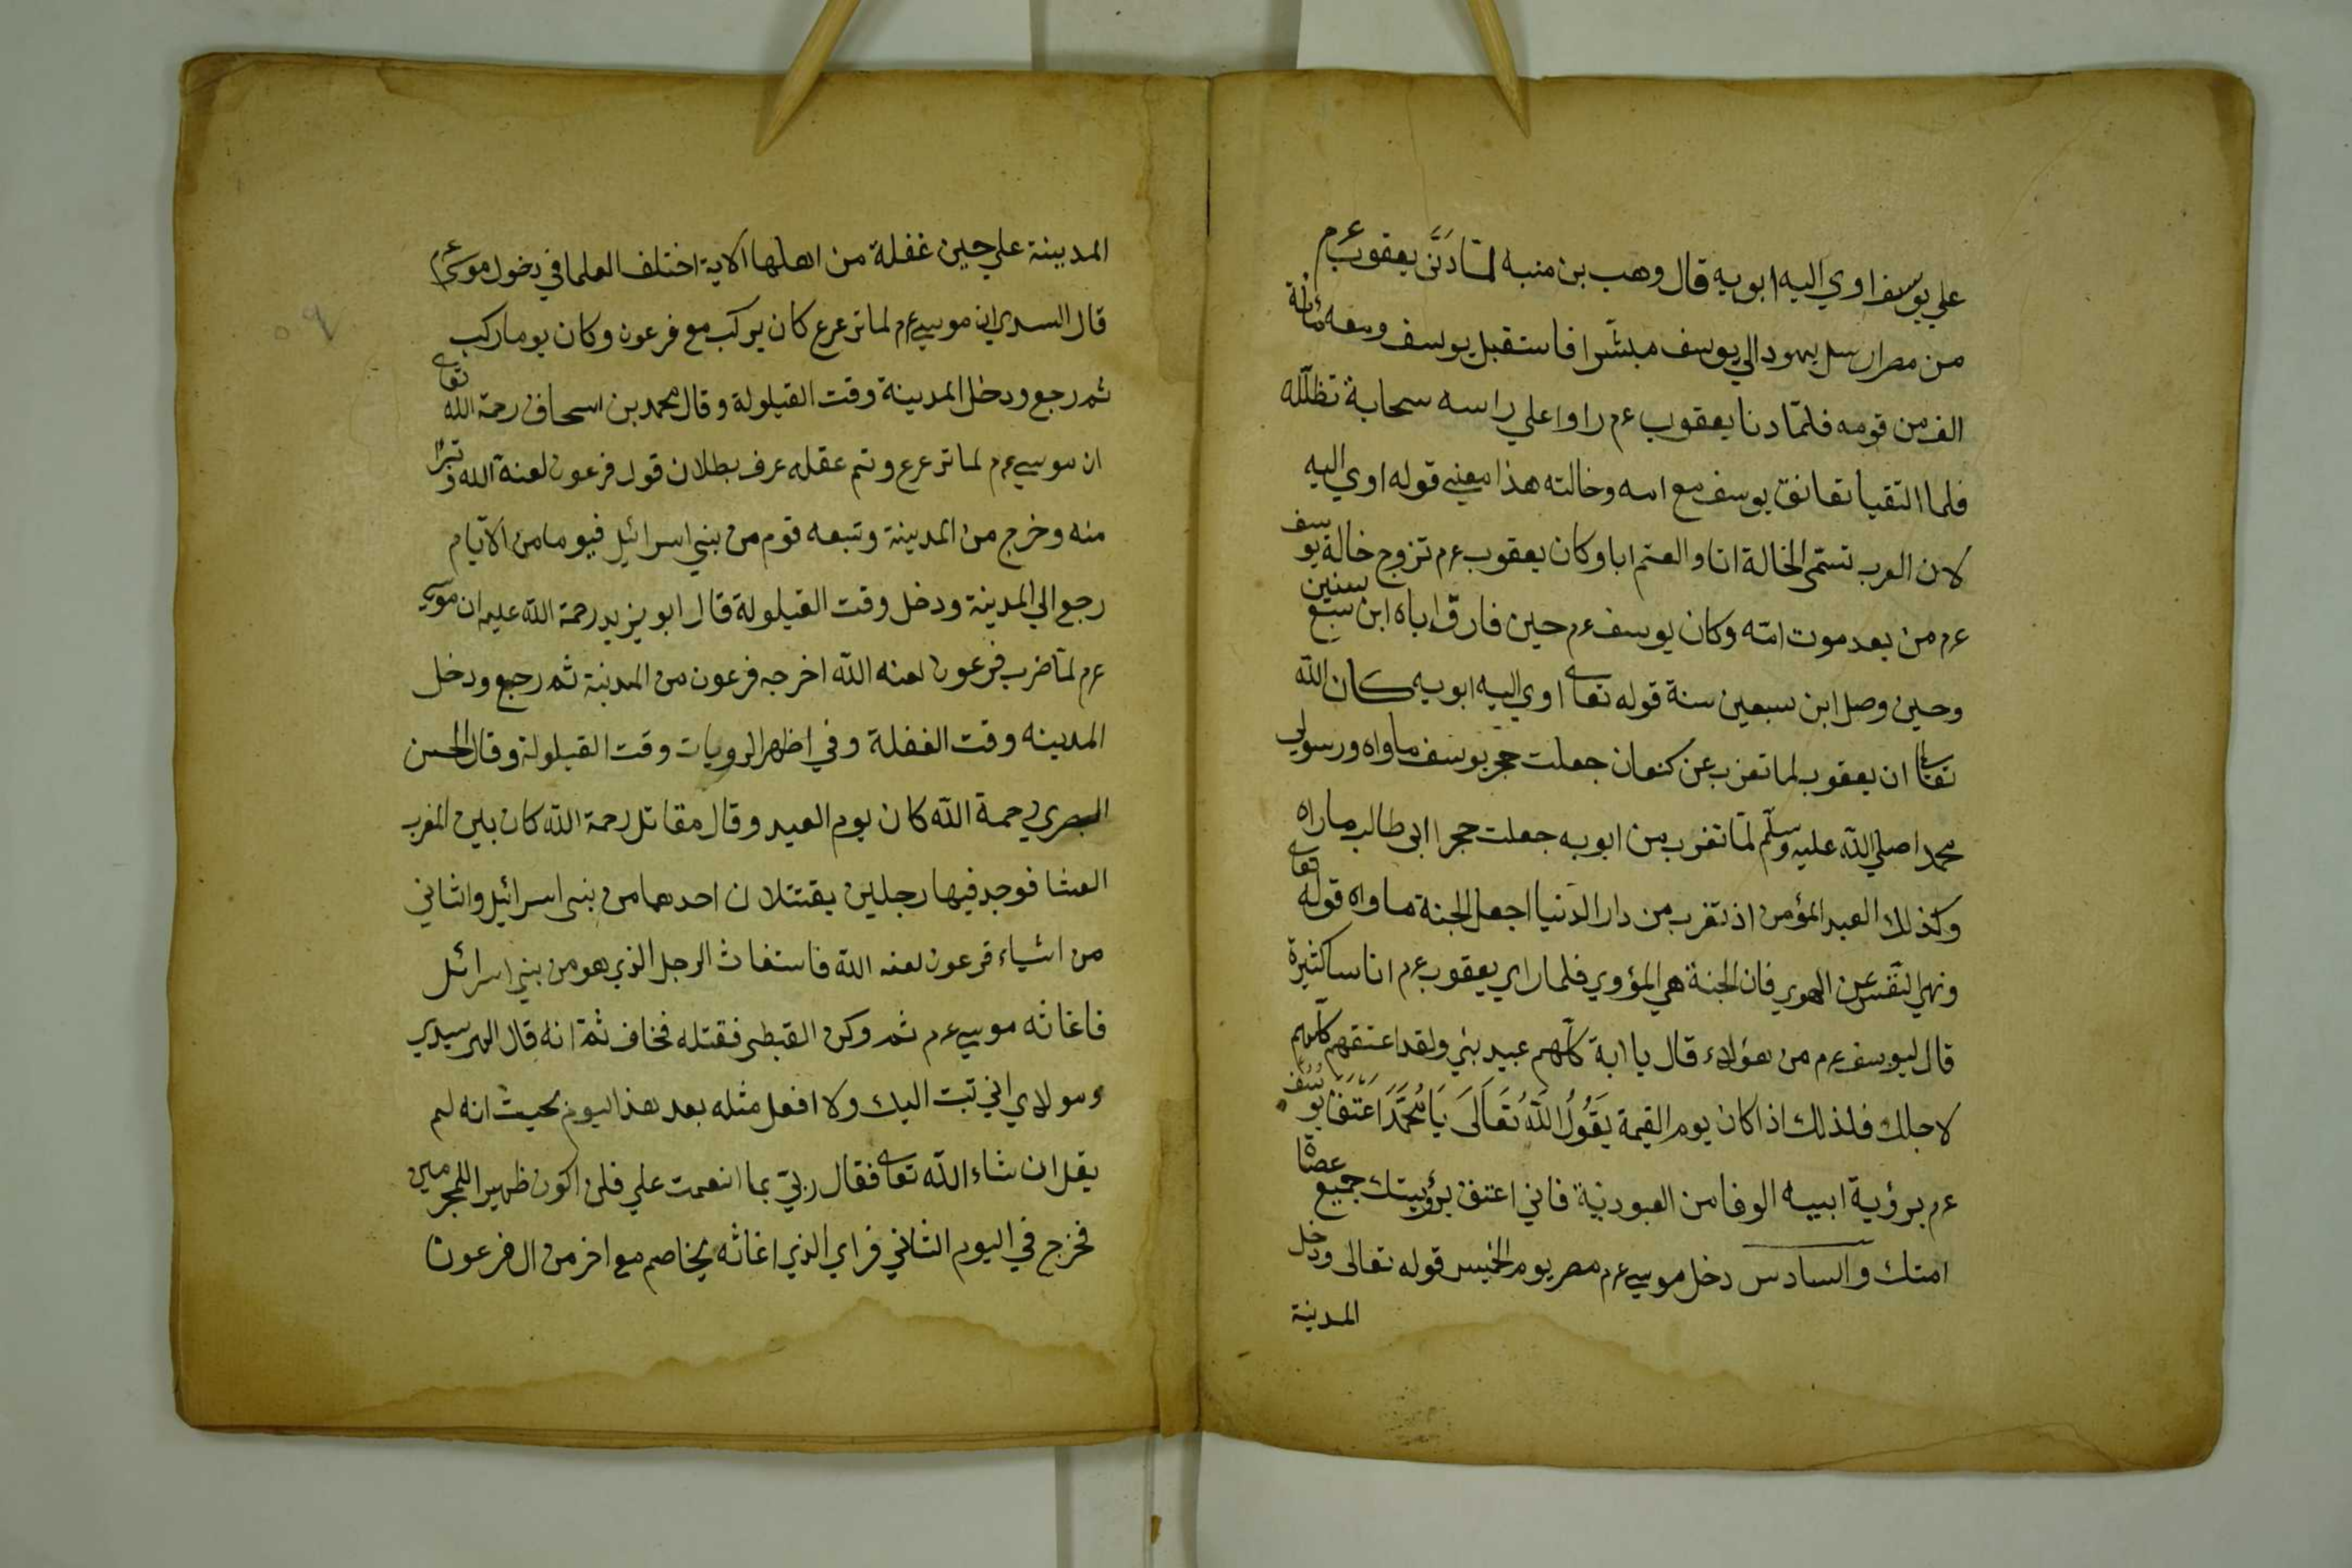 علي يوسف اوي اليه ابويه قال وهب بن منبه لما دنى يعقوب عم
من مصر ارسل يهودا الي يوسف مبشرا فاستقبل يوسف ومعه مائة
الف من قومه فلما دنا يعقوب عم راوا علي راسه سحابة تظلله
فلما التقيا تعانق يوسف مع امه وخالته هذا معني قوله اوي اليه
لان العرب تسمى الخالة اما والعم ابا وكان يعقوب عم تزوج خالة يوسف
عم من بعد موت امه وكان يوسف عم حين فارق اباه ابن سبع سنين
وحين وصل ابن سبعين سنة قوله تعالى اوي اليه ابويه كان الله
تعالى ان يعقوب لما تعزب عن كنعان جعلت حجر يوسف ماواه ورسولي
محمدا صلي الله عليه وسلم لما تغرب من ابويه جعلت حجر ابى طالب ماراه
وكذلك العبد المؤمن اذ تغرب من دار الدنيا اجعل الجنة ماواه قوله تعالى
ونهى النفس عن الهوي فان الجنة هي المؤوي فلما راي يعقوب عم اناسا كثيرة
قال ليوسف عم من هؤلاء قال يا ابة كلهم عبيد بني ولقد اعتقهم كلهم
لاجلك فلذلك اذا كان يوم القيمة يَقُولُ اللهُ تَعَالَى يَا مُحَمَّدَ اَعْتَقَ يُوسُفُ
عم برؤية ابيه الوفا من العبودية فاني اعتق برؤيتك جميع عصاة
امتك والسادس دخل موسي عم مصر يوم الخميس قوله تعالى ودخل
المدينة
المدينة علي حين غفلة من اهلها الاية اختلف العلما في دخول موسى عم
قال السدي ان موسي عم لما ترعرع كان يركب مع فرعون وكان يوما ركب
ثم رجع ودخل المدينة وقت القيلولة وقال محمد بن اسحاق رحمة الله تعالى
ان موسي عم لما ترعرع وتم عقله عرف بطلان قول فرعون لعنة الله وتبرا
منه وخرج من المدينة وتبعه قوم من بني اسرائيل فيوما من الايام
رجع الي المدينة ودخل وقت القيلولة قال ابو يزيد رحمة الله عليه ان موسي
عم لما ضرب فرعون لعنه الله اخرجه فرعون من المدينة ثم رجع ودخل
المدينه وقت الغفلة وفي اظهر الرويات وقت القيلولة وقال الحسن
البصري رحمة الله كان يوم العيد وقال مقاتل رحمة الله كان بين المغرب
العشا فوجد فيها رجلين يقتتلان احدهما من بنى اسرائيل والثاني
من اشياء فرعون لعنه الله فاستغاث الرجل الذي هو من بني اسرائل
فاغاثه موسي عم ثم وكن القبطى فقتله فخاف ثم انه قال الهي سيدي
ومولاي اني تبت اليك ولا افعل مثله بعد هذا اليوم بحيث انه لم
يقل ان شاء الله تعالى فقال ربي بما انعمت علي فلن اكون ظهيرا للمجرمين
فخرج في اليوم الثاني فراي الذي اغاثه يخاصم مع اخر من ال فرعون